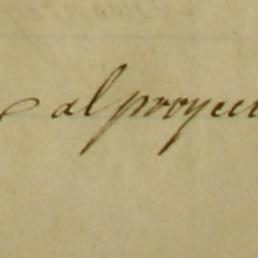 al proyect